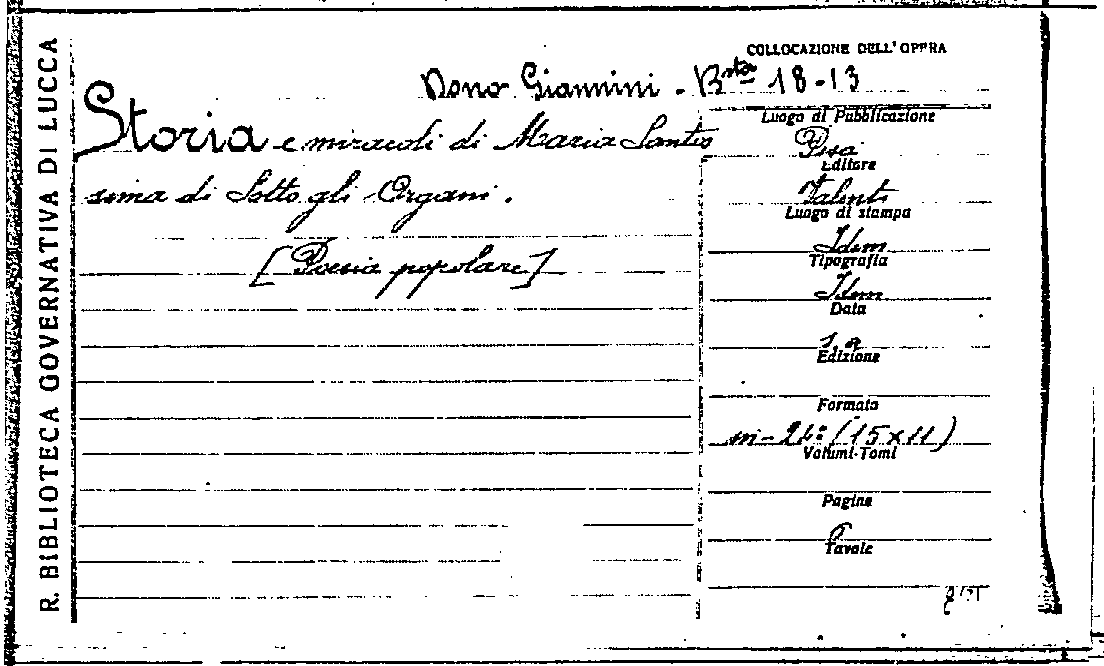 R. BIBLIOTECA GOVERNATIVA DI LUCCA
COLLOCAZIONE DELL'OPERA
Dono Giannini - Bsta 18-13
Storia e miracoli di Maria Santis
sima di Sotto gli Organi.
[Poesia popolare]
Luogo di Pubblicazione
Pisa
Editore
Valenti
Luogo di stampa
Idem
Tipografia
Idem
Data
s. a.
Edizione
Formato
in-24° (15x11)
Volumi-Tomi
Pagine
Tavole